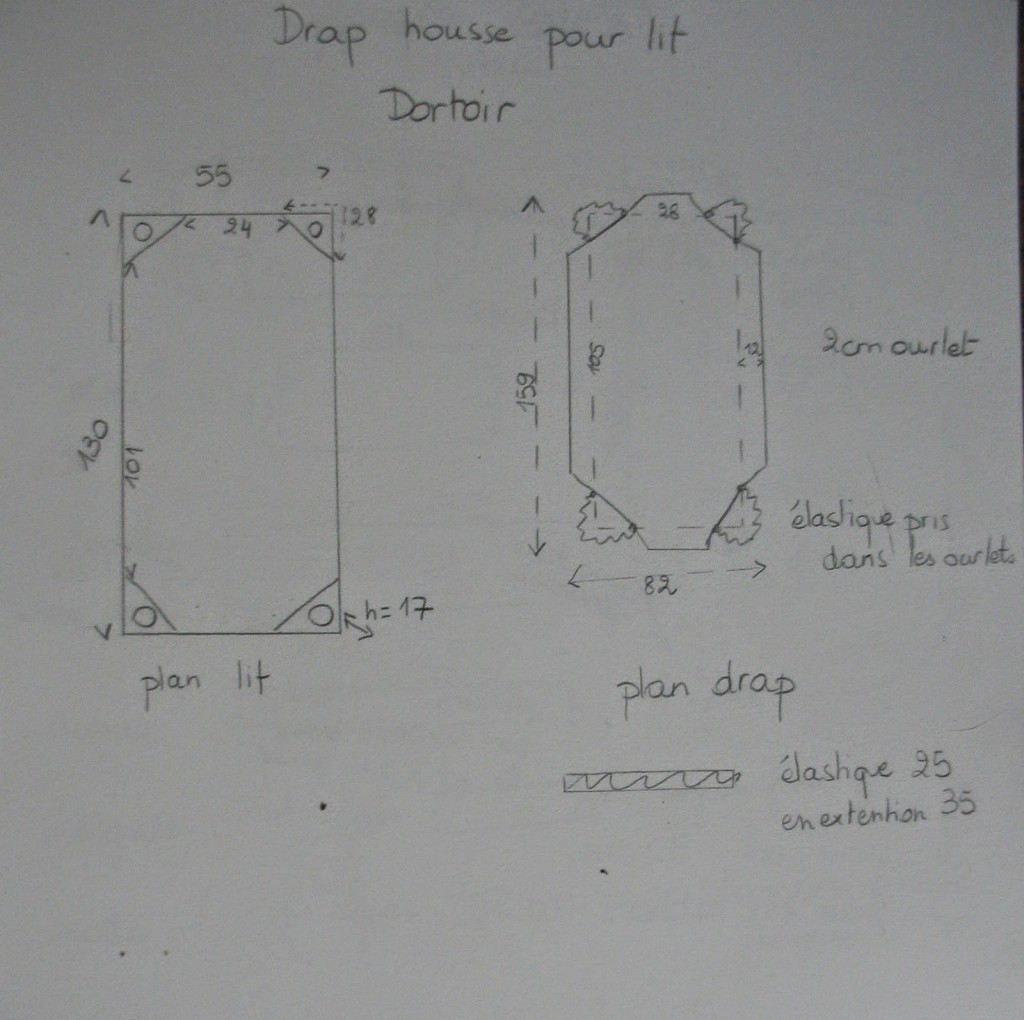 Drap housse pour lit
Dortoir
< 55 >
28
24
130
101
h=17
plan lit
28
159
105
12
2cm ourlet
élastique pris
dans les ourlets
82
plan drap
élastique 25
en extention 35